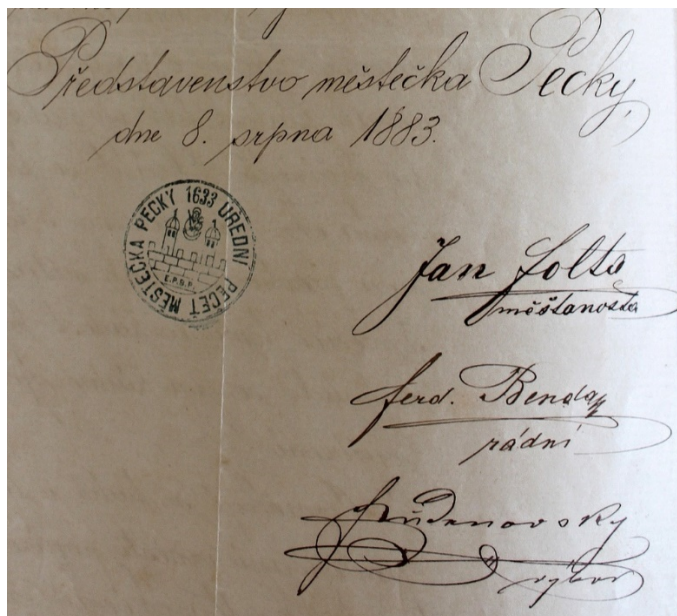 Představenstvo městečka Pecky,
dne 8. srpna 1883.
ÚŘEDNÍ PEČEŤ MĚSTEČKA PECKY 1633
Jan
měštanosta
ferd. Benda
rádní
výbor